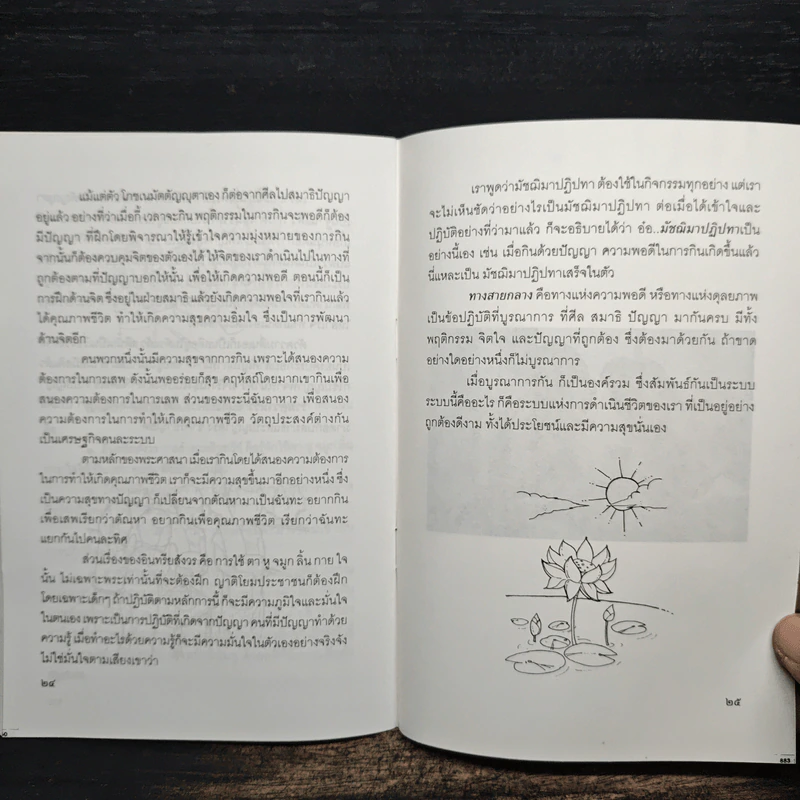 แม้แต่ตัว โภชเนมัตตัญญุตาเอง ก็ต่อจากศีลไปสมาธิปัญญา
อยู่แล้ว อย่างที่ว่าเมื่อกี้ เวลาจะกิน พฤติกรรมในการกินจะพอดีก็ต้อง
มีปัญญา ที่ฝึกโดยพิจารณาให้รู้เข้าใจความมุ่งหมายของการกิน
จากนั้นก็ต้องควบคุมจิตของตัวเองได้ ให้จิตของเราดำเนินไปในทางที่
ถูกต้องตามที่ปัญญาบอกให้นั้น เพื่อให้เกิดความพอดี ตอนนี้ก็เป็น
การฝึกด้านจิต ซึ่งอยู่ในฝ่ายสมาธิ แล้วยังเกิดความพอใจที่เรากินแล้ว
ได้คุณภาพชีวิต ทำให้เกิดความสุขความอิ่มใจ ซึ่งเป็นการพัฒนา
ด้านจิตอีก
คนพวกหนึ่งนั้นมีความสุขจากการกิน เพราะได้สนองความ
ต้องการในการเสพ ดังนั้นพออร่อยก็สุข คฤหัสถ์โดยมากเขากินเพื่อ
สนองความต้องการในการเสพ ส่วนของพระนี่ฉันอาหาร เพื่อสนอง
ความต้องการในการทำให้เกิดคุณภาพชีวิต วัตถุประสงค์ต่างกัน
เป็นเศรษฐกิจคนละระบบ
ตามหลักของพระศาสนา เมื่อเรากินโดยได้สนองความต้องการ
ในการทำให้เกิดคุณภาพชีวิต เราก็จะมีความสุขขึ้นมาอีกอย่างหนึ่ง ซึ่ง
เป็นความสุขทางปัญญา ก็เปลี่ยนจากตัณหามาเป็นฉันทะ อยากกิน
เพื่อเสพเรียกว่าตัณหา อยากกินเพื่อคุณภาพชีวิต เรียกว่าฉันทะ
แยกกันไปคนละทิศ
ส่วนเรื่องของอินทรียสังวร คือ การใช้ ตา หู จมูก ลิ้น กาย ใจ
นั้น ไม่เฉพาะพระเท่านั้นที่จะต้องฝึก ญาติโยมประชาชนก็ต้องฝึก
โดยเฉพาะเด็กๆ ถ้าปฏิบัติตามหลักการนี้ ก็จะมีความภูมิใจและมั่นใจ
ในตนเอง เพราะเป็นการปฏิบัติที่เกิดจากปัญญา คนที่มีปัญญาทำด้วย
ความรู้ เมื่อทำอะไรด้วยความรู้ก็จะมีความมั่นใจในตัวเองอย่างจริงจัง
ไม่ใช่มั่นใจตามเสียงเขาว่า
๒๔
เราพูดว่ามัชฌิมาปฏิปทา ต้องใช้ในกิจกรรมทุกอย่าง แต่เรา
จะไม่เห็นชัดว่าอย่างไรเป็นมัชฌิมาปฏิปทา ต่อเมื่อได้เข้าใจและ
ปฏิบัติอย่างที่ว่ามาแล้ว ก็จะอธิบายได้ว่า อ๋อ..มัชฌิมาปฏิปทาเป็น
อย่างนี้เอง เช่น เมื่อกินด้วยปัญญา ความพอดีในการกินเกิดขึ้นแล้ว
นี่แหละเป็น มัชฌิมาปฏิปทาเสร็จในตัว
ทางสายกลาง คือทางแห่งความพอดี หรือทางแห่งดุลยภาพ
เป็นข้อปฏิบัติที่บูรณาการ ที่ศีล สมาธิ ปัญญา มากันครบ มีทั้ง
พฤติกรรม จิตใจ และปัญญาที่ถูกต้อง ซึ่งต้องมาด้วยกัน ถ้าขาด
อย่างใดอย่างหนึ่งก็ไม่บูรณาการ
เมื่อบูรณาการกัน ก็เป็นองค์รวม ซึ่งสัมพันธ์กันเป็นระบบ
ระบบนี้คืออะไร ก็คือระบบแห่งการดำเนินชีวิตของเรา ที่เป็นอยู่อย่าง
ถูกต้องดีงาม ทั้งได้ประโยชน์และมีความสุขนั่นเอง
๒๕
683